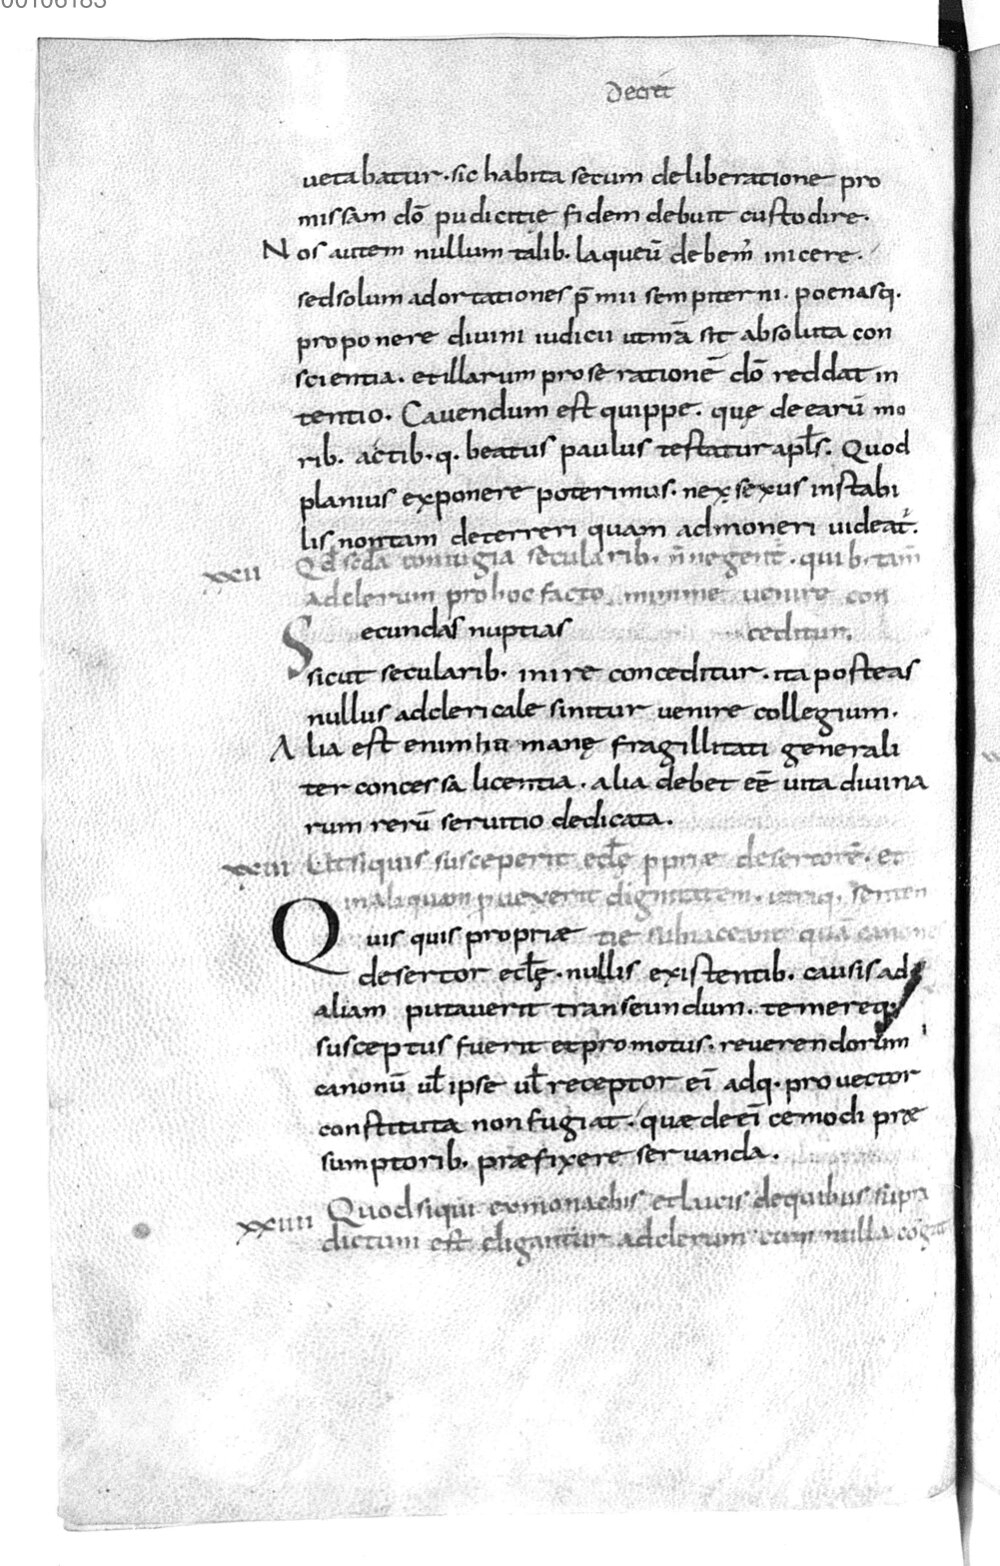 00106183
Decret
uetabatur · sic habita secum deliberatione pro
missam dō pudicitię fidem debuit custodire ·
Nos autem nullum talib · laqueū debem᾽ inicere ·
sed solum adortationes p̄mii sempiterni · poenasq ·
proponere diuini iudicii ut nr̄a sit absoluta con
scientia · et illarum pro se rationē dō reddat in
tentio · Cauendum est quippe · quę de earū mo
rib · actib · q · beatus paulus testatur apłs · Quod
planius exponere poterimus · nex sexus instabi
lis non tam deterreri quam admoneri uideat᾽ ·
xxii Qd̄ seda coniugia secularib · n̄ negent᾽ · quib · tam̄
ad clerum pro hoc facto minime uenire con
Secundas nuptias ceditur ·
sicut secularib · inire conceditur · ita posteas
nullus ad clericale sinitur uenire collegium ·
Alia est enim humanę fragillitati generali
ter concessa licentia · alia debet eē uita diuina
rum rerū seruitio dedicata ·
xxiii Ut siquis susceperit ecłę ppriæ desertorē · et
in aliquam puexerit dignitatem · utriq · senten
Quis quis propriæ tie subiacebit quā canones
desertor ecłę · nullis existentib · causis ad
aliam putauerit transeundum · temereq ·
susceptus fuerit et promotus · reuerendorum
canonū uł ipse uł receptor ei᾽ adq · prouector
constituta non fugiat · quæ de ei᾽cemodi præ
sumptorib · præfixere seruanda ·
xxiiii Quod siqui ex monachis et laicis de quibus supra
dictum est eligantur ad clerum cum nulla